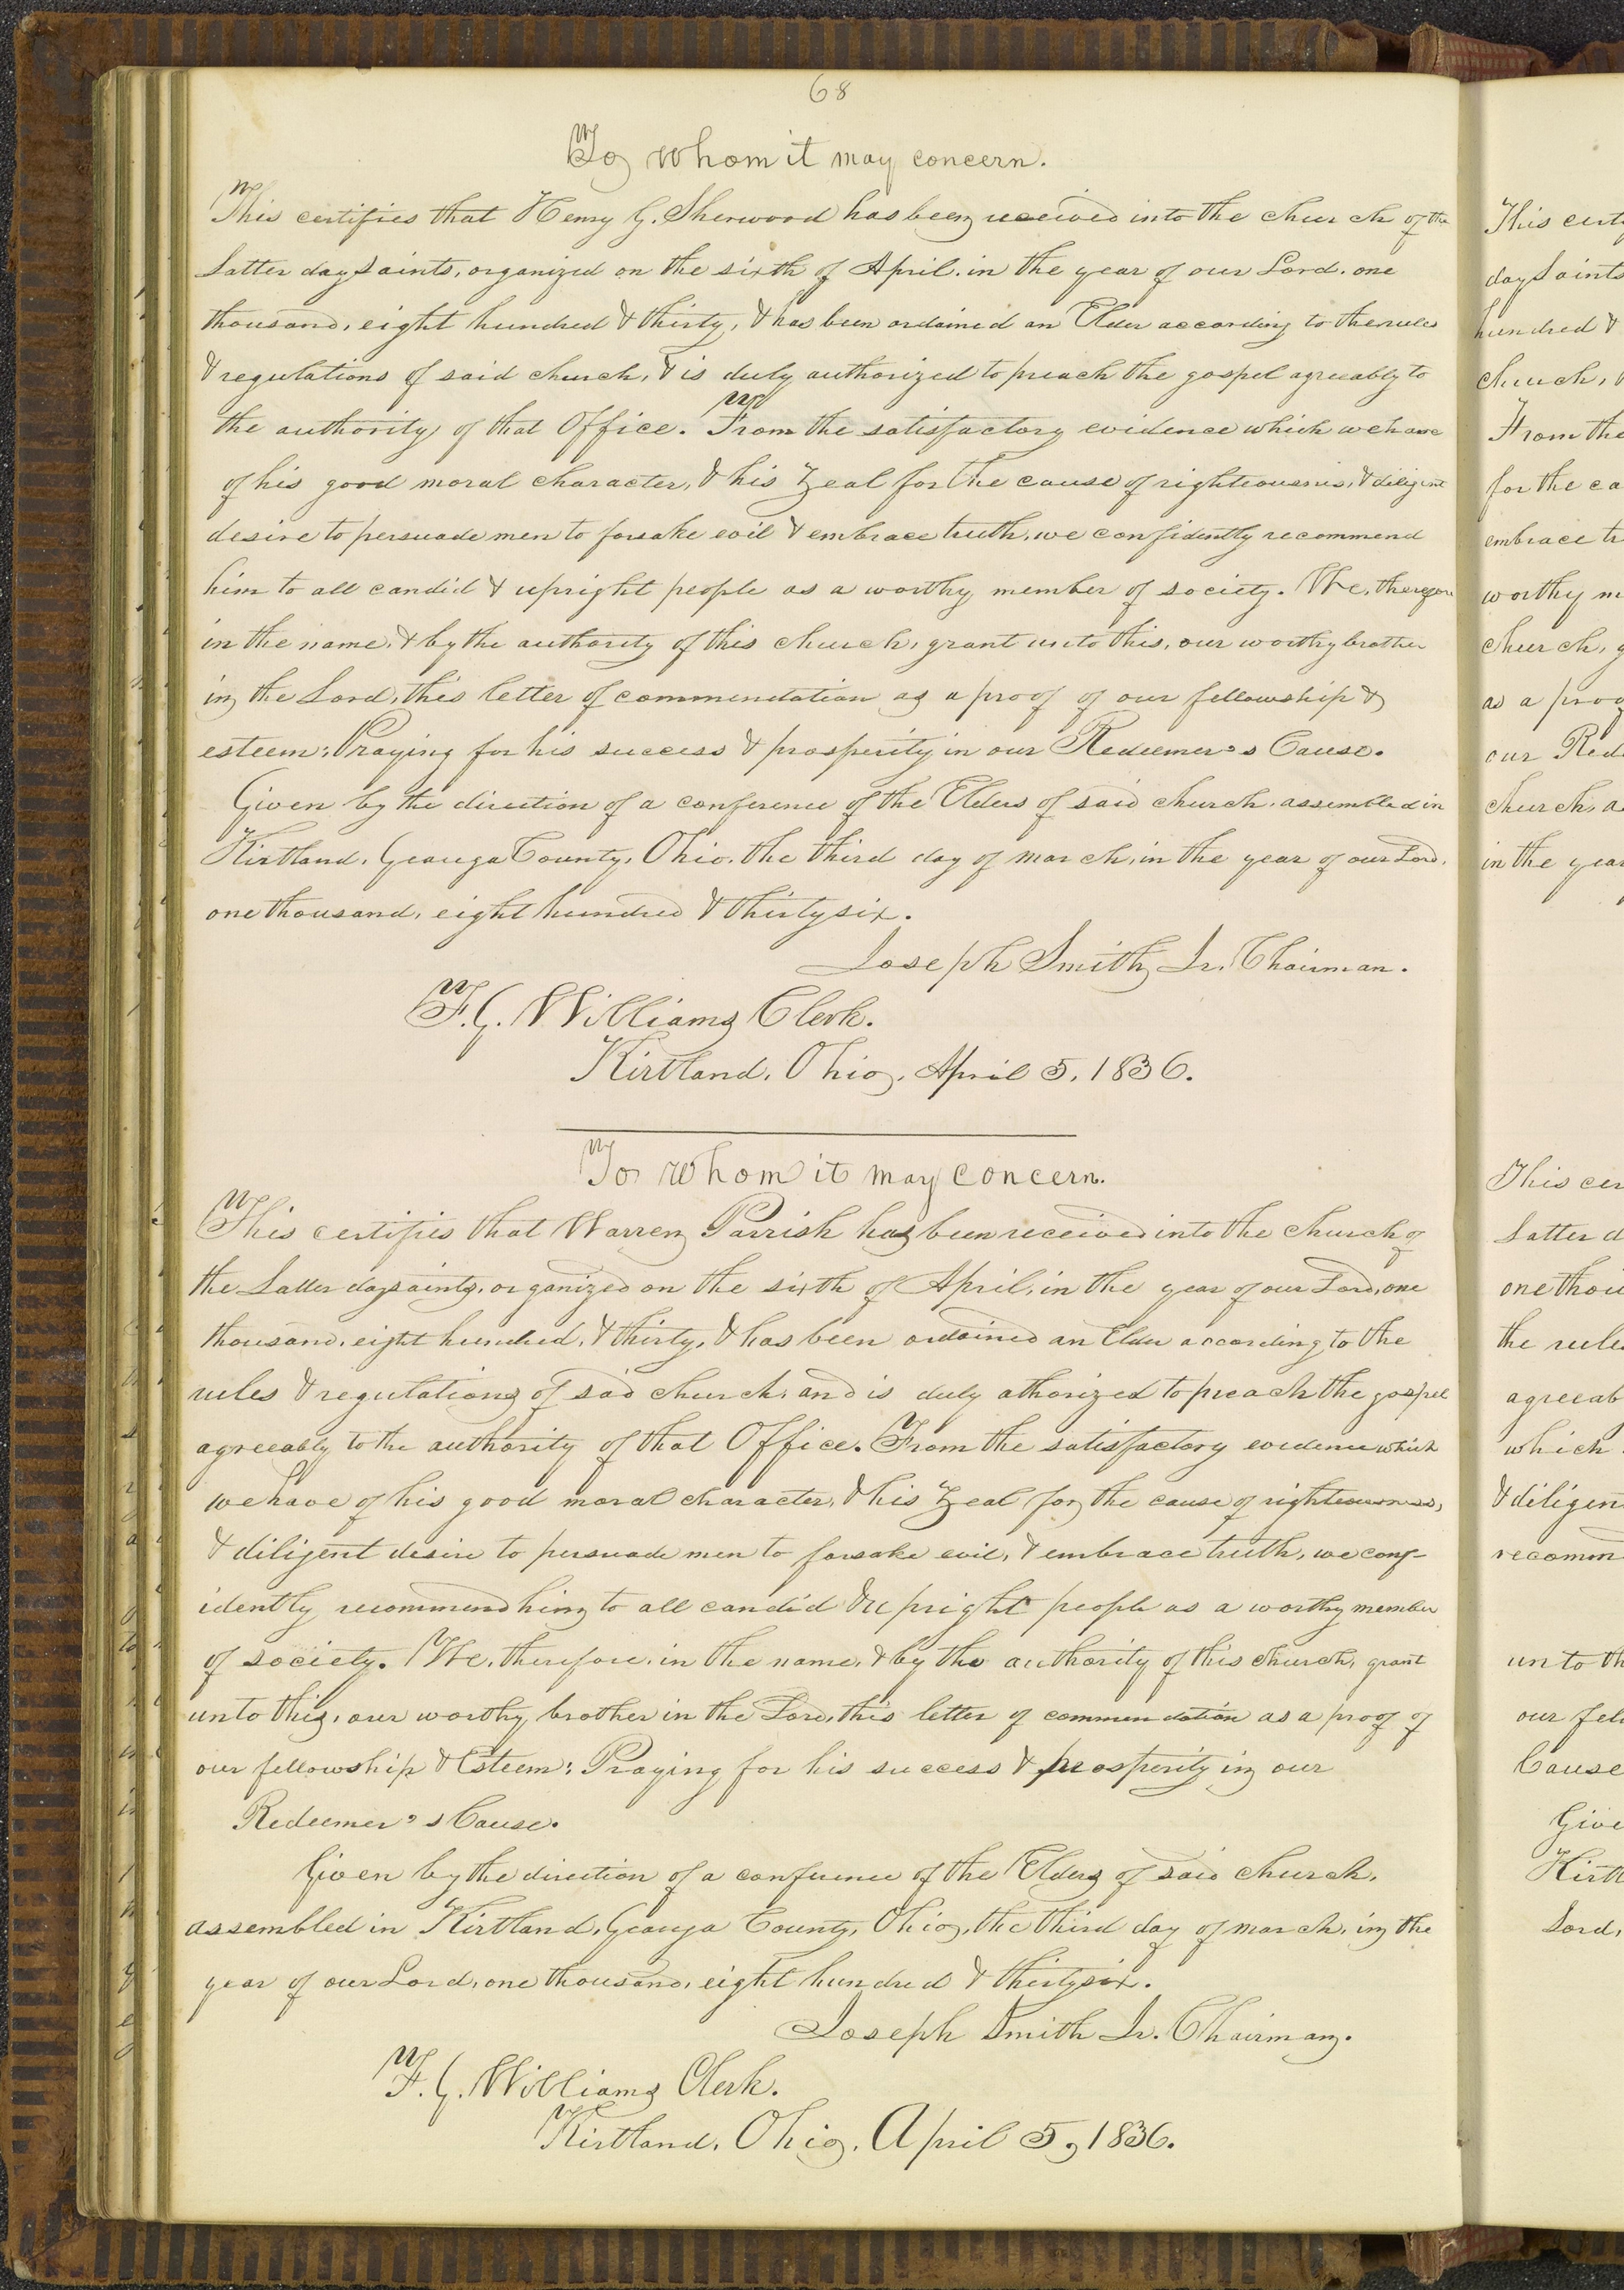 68
To whom it may concern.
This certifies that Henry G. Sherwood has been received into the church of the
Latter day Saints, organized on the sixth of April, in the year of our Lord, one
thousand, eight hundred & thirty, & has been ordained an Elder according to the rules
& regulations of said church, & is duly authorized to preach the gospel agreeably to
the authority of that Office. From the satisfactory evidence which we have
of his good moral character, & his zeal for the cause of righteousness, & diligent
desire to persuade men to forsake evil & embrace truth, we confidently recommend
him to all candid & upright people as a worthy member of society. We, therefore
in the name, & by the authority of this church, grant unto this, our worthy brother
in the Lord, this letter of commendation as a proof of our fellowship &
esteem: Praying for his success & prosperity in our Redeemer's Cause.
Given by the direction of a conference of the Elders of said church, assembled in
Kirtland, Geauga County, Ohio, the third day of march, in the year of our Lord,
one thousand, eight hundred & thirty six.
Joseph Smith Jr. Chairman.
F. G. Williams Clerk.
Kirtland, Ohio, April 5, 1836.
To whom it may concern.
This certifies that Warren Parrish has been received into the church of
the Latter day saints, organized on the sixth of April, in the year of our Lord, one
thousand, eight hundred, & thirty, & has been ordained an Elder according to the
rules & regulations of said church, and is duly athorized to preach the gospel
agreeably to the authority of that Office. From the satisfactory evidence which
we have of his good moral character, & his zeal for the cause of righteousness,
& diligent desire to persuade men to forsake evil, & embrace truth, we conf-
idently recommend him to all candid & upright people as a worthy member
of society. We, therefore, in the name, & by the authority of this church, grant
unto this, our worthy brother in the Lord, this letter of commendation as a proof of
our fellowship & Esteem: Praying for his success & prosperity in our
Redeemer's Cause.
Given by the direction of a conference of the Elders of said church,
assembled in Kirtland, Geauga County, Ohio, the third day of march, in the
year of our Lord, one thousand, eight hundred & thirty six.
Joseph Smith Jr. Chairman.
F. G. Williams Clerk.
Kirtland, Ohio, April 5, 1836.
This
day Saints
hundred &
church,
From the
for the
embrace
worthy
church,
as a
our
church,
in the
This
Latter
one
the
agreeab
which
& diligen
recomm
unto
our
Cause
Lord,